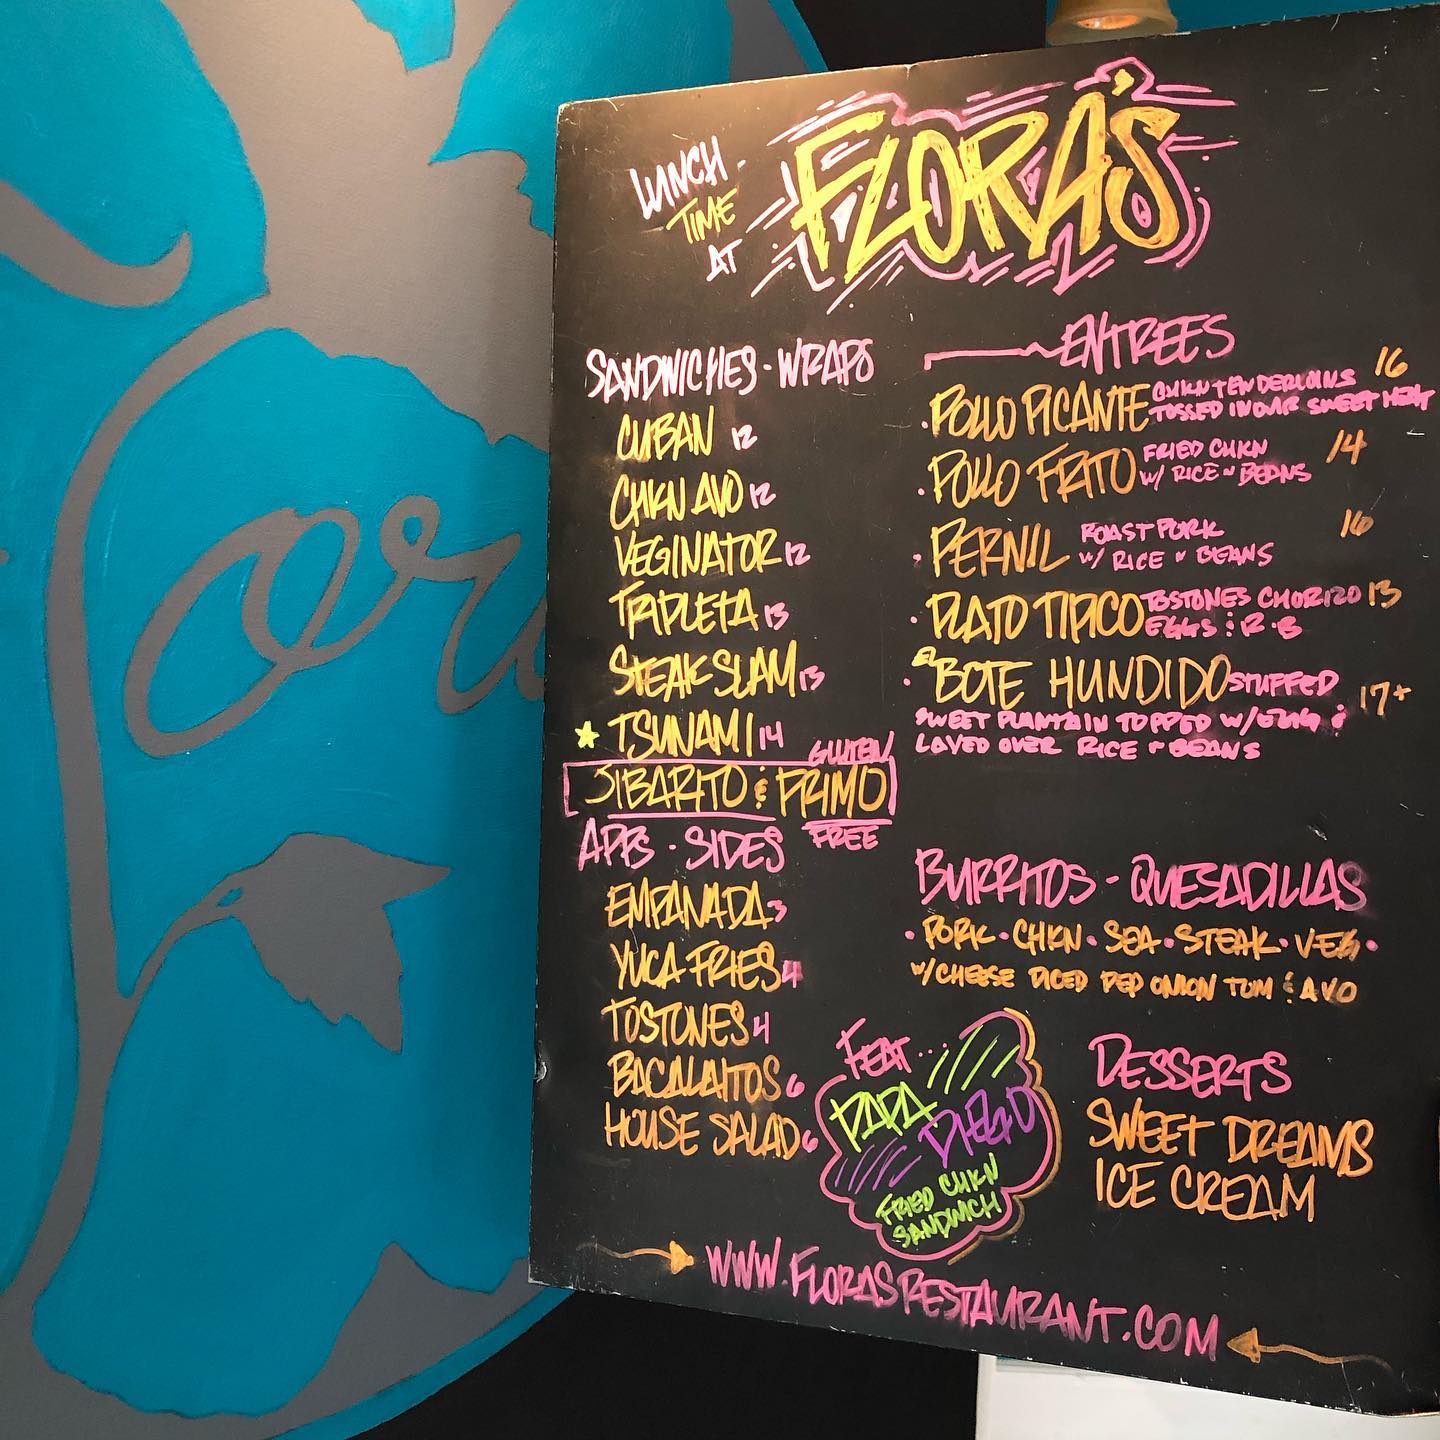 or
LUNCH-
TIME
AT
FLORA'S
SANDWICHES - WRAPS
CUBAN 12
CHKN AVO 12
VEGINATOR 12
TRIPLETA 13
STEAK SLAM 13
TSUNAMI 14
GLUTEN
JIBARITO & PRIMO
FREE
APPS - SIDES
EMPANADA 3
YUCA FRIES 4
TOSTONES 4
BACALAITOS 6
HOUSE SALAD 6
ENTREES
POLLO PICANTE CHKN TENDERLOINS 16
TOSSED IN OUR SWEET HEAT
POLLO FRITO FRIED CHKN 14
W/ RICE N BEANS
PERNIL ROAST PORK 16
W/ RICE N BEANS
PLATO TIPICO TOSTONES CHORIZO 13
EGGS & R B
EL BOTE HUNDIDO STUFFED 17+
SWEET PLANTAIN TOPPED W/ &
LAYED OVER RICE N BEANS
BURRITOS - QUESADILLAS
• PORK • CHKN • SEA • STEAK • VEG •
W/ CHEESE DICED RED ONION TOM & AVO
FEAT...
PAPA
DIEGO
FRIED CHKN
SANDWICH
DESSERTS
SWEET DREAMS
ICE CREAM
WWW.FLORASRESTAURANT.COM